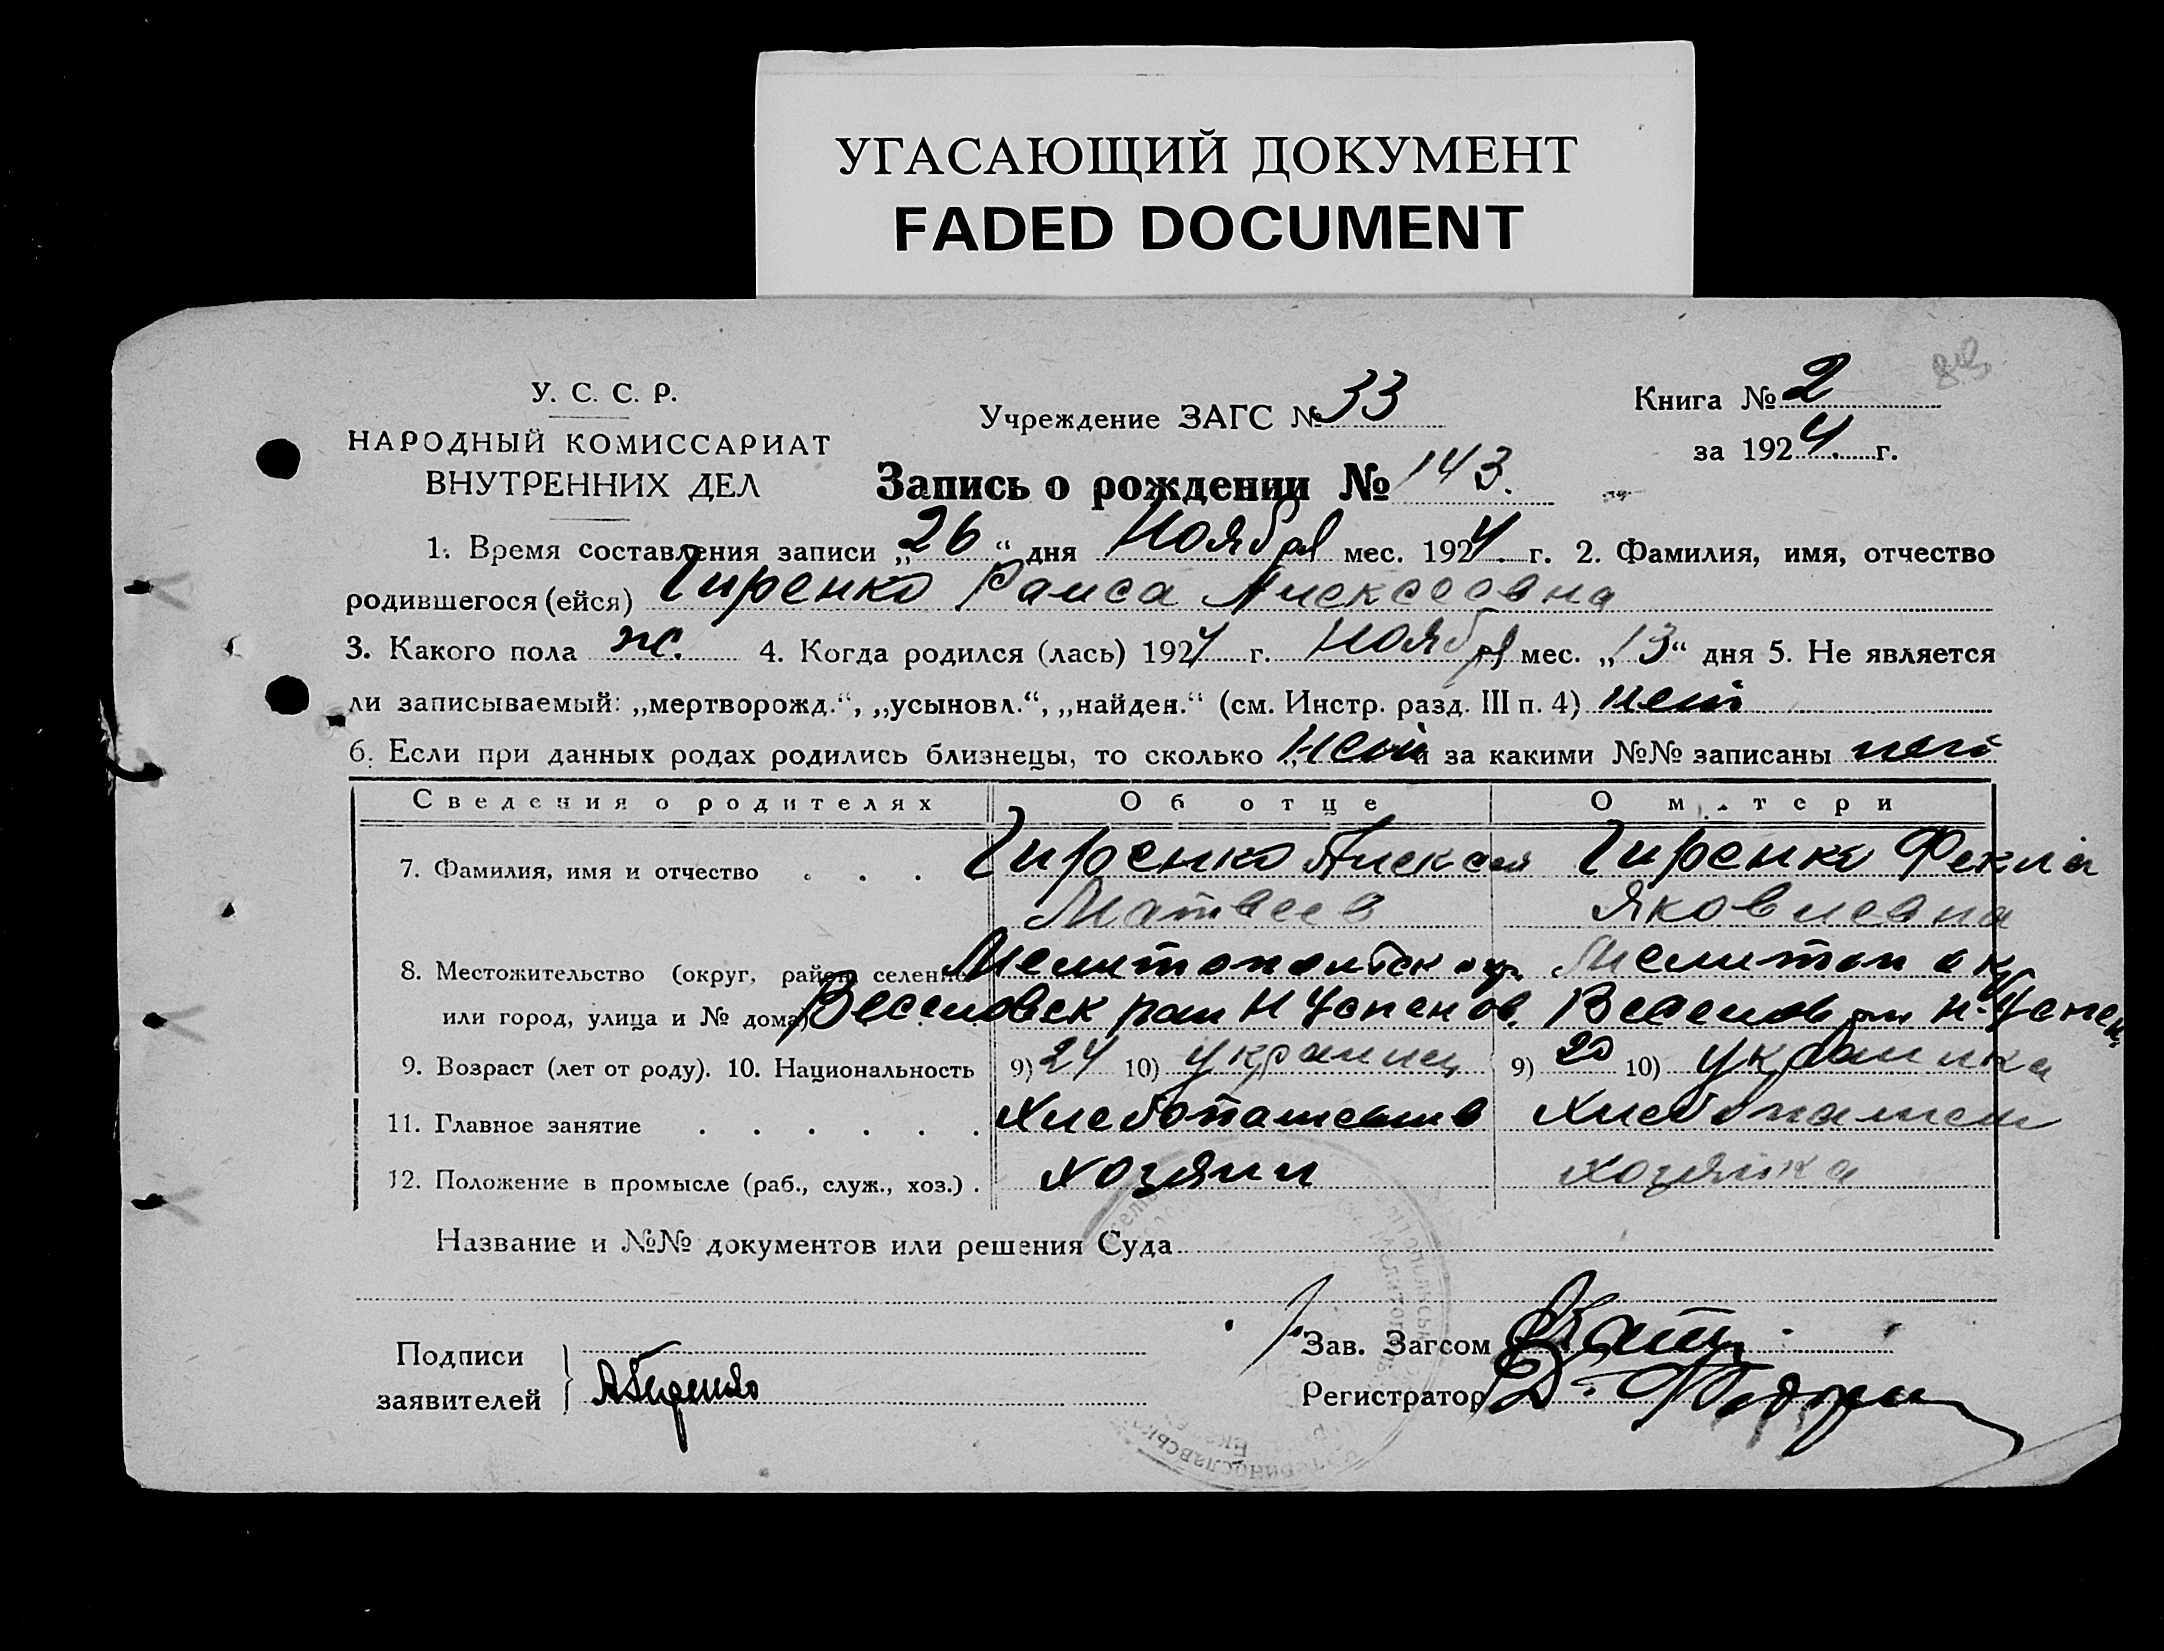 УГАСАЮЩИЙ ДОКУМЕНТ
FADED DOCUMENT
У. С. С. Р.
НАРОДНЫЙ КОМИССАРИАТ
ВНУТРЕННИХ ДЕЛ
Учреждение ЗАГС № 33
Книга № 2
за 1924 г.
Запись о рождении № 143.
1. Время составления записи „26“ дня Ноября мес. 1924 г. 2. Фамилия, имя, отчество
родившегося (ейся) Гиренко Раиса Алексеевна
3. Какого пола ж. 4. Когда родился (лась) 1924 г. Ноября мес. „13“ дня 5. Не является
ли записываемый: „мертворожд.“, „усыновл.“, „найден.“ (см. Инстр. разд. III п. 4) нет
6. Если при данных родах родились близнецы, то сколько нет и за какими №№ записаны нет
Сведения о родителях Об отце О матери
7. Фамилия, имя и отчество . . . Гиренко Алексей Гиренко Фекла
Матвеев Яковлевна
8. Местожительство (округ, район, селение Мелитопольск окр. Мелитоп ок
или город, улица и № дома) Веселовск рай Н Успенов. Веселов рай Н-Успен
9. Возраст (лет от роду). 10. Национальность 9) 24 10) украинец 9) 20 10) украинка
11. Главное занятие . . . . . . Хлебопашество Хлебопашест
12. Положение в промысле (раб., служ., хоз.) . хозяин хозяйка
Название и №№ документов или решения Суда
Подписи
заявителей
А Гиренко
Зав. Загсом
Регистратор